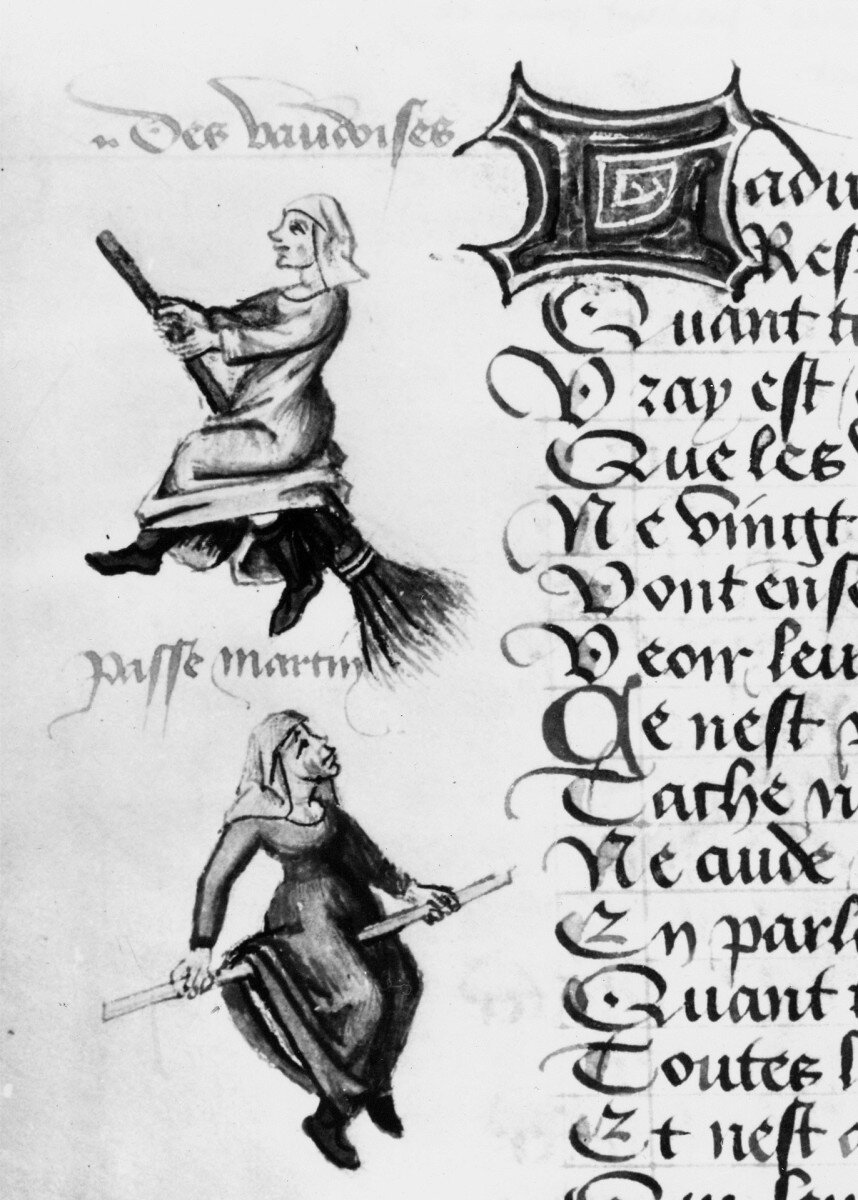 Des vaudoises
passe martin
Ladu
Res
Quant t
Vray est
Que les
Ne vingt
Vont ense
Veoir leu
Ce nest p
Tache n
Ne aude
En parl
Quant
Toutes l
Et nest